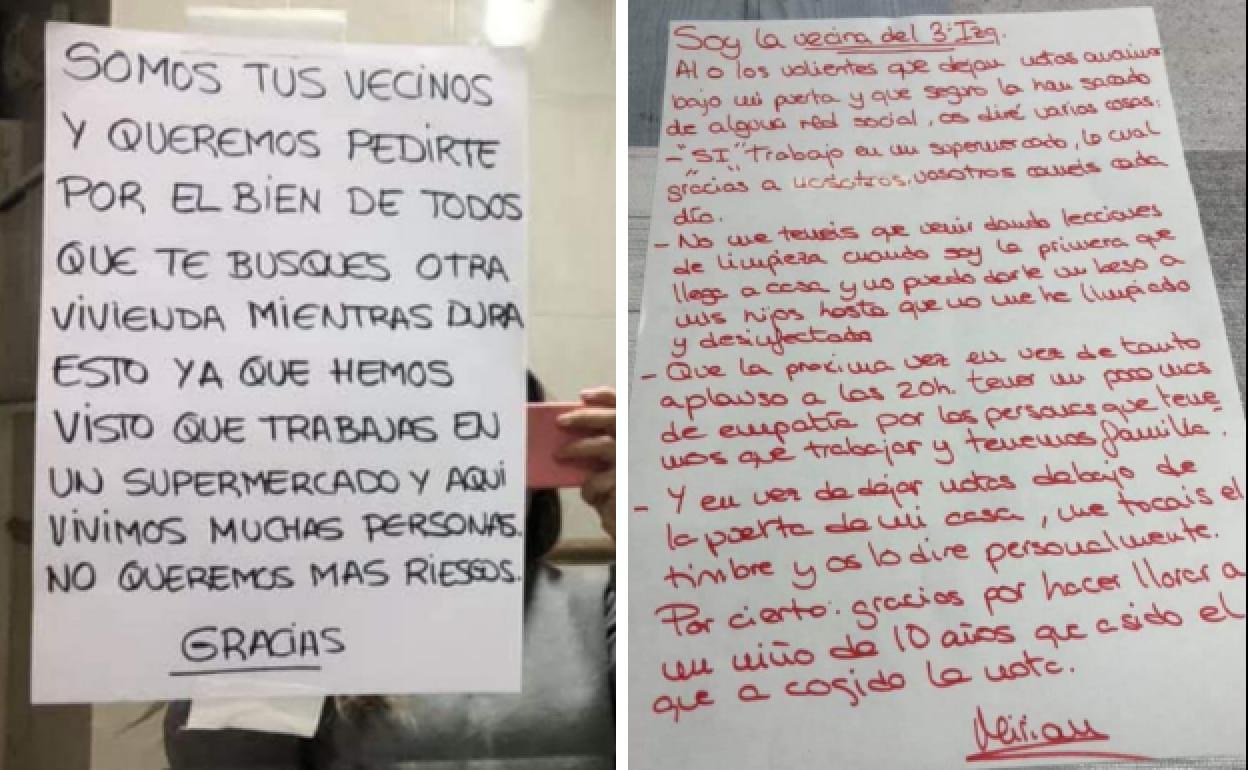 SOMOS TUS VECINOS
Y QUEREMOS PEDIRTE
POR EL BIEN DE TODOS
QUE TE BUSQUES OTRA
VIVIENDA MIENTRAS DURA
ESTO YA QUE HEMOS
VISTO QUE TRABAJAS EN
UN SUPERMERCADO Y AQUI
VIVIMOS MUCHAS PERSONAS.
NO QUEREMOS MAS RIESGOS.
GRACIAS
Soy la vecina del 3º Izq.
Al o los valientes que dejan notas
bajo mi puerta y que seguro la han sacado
de alguna red social, os diré varias cosas:
- "SI" trabajo en un supermercado, lo cual
gracias a vosotros, vosotros coméis cada
día.
- No me tenéis que venir dando lecciones
de limpieza cuando soy la primera que
llega a casa y no puedo darle un beso a
mis hijos hasta que no me he limpiado
y desinfectado
- Que la proxima vez en vez de tanto
aplauso a las 20h. tener un poco mas
de empatía por las personas que tene-
mos que trabajar y tenemos familia.
- Y en vez de dejar notas debajo de
la puerta de mi casa, me tocais el
timbre y os lo dire personalmente.
Por cierto: gracias por hacer llorar a
un niño de 10 años que a sido el
que a cogido la nota.
Mirian